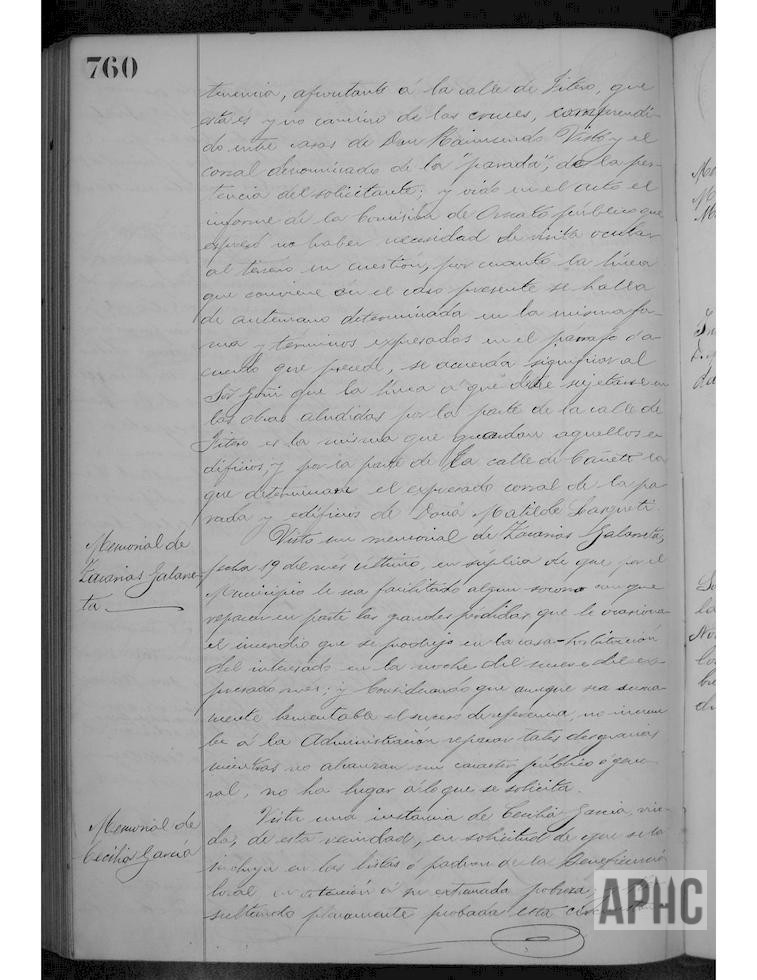 760
tenencia, afrontante á la calle de Fitero, que
esta es y no camino de las cruces, comprendi-
do entre casas de Don Raimundo Visto y el
corral denominado de la "parada", de la per-
tencia del solicitante; y oido en el acto el
informe de la Comisión de Ornato público que
expresó no haber necesidad de visita ocular
al terreno en cuestión, por cuanto la línea
que conviene en el caso presente se halla
de antemano determinada en la misma for-
ma y terminos expresados en el párrafo ó a-
cuerdo que precede, se acuerda significar al
Sor Goñi que la línea á que debe sujetarse en
las obras aludidas por la parte de la calle de
Fitero es la misma que guardan aquellos e-
dificios, y por la parte de la calle de Cañete la
que determinan el expresado corral de la pa-
rada y edificios de Doña Matilde
Memorial de
Zacarias Galarre-
ta
Visto un memorial de Zacarias Galarreta,
fecha 19 del mes último, en súplica de que por el
Municipio le sea facilitado algun socorro con que
reparar en parte las grandes pérdidas que le ocasionara
el incendio que se produjo en la casa-habitación
del interesado en la noche del nueve del ex-
presado mes; y Considerando que aunque sea suma-
mente lamentable el suceso de referencia, no incum-
be á la Administración reparar tales desgracias
mientras no alcanzan un caracter público ó gene-
ral, no ha lugar á lo que se solicita.
Memorial de
Cecilia García
Vista una instancia de Cecilia Garcia, viu-
da, de esta vecindad, en solicitud de que se la
incluya en las listas ó padron de la Beneficencia
local en atención á su extremada pobreza; y re-
sultando plenamente probada esta
APHC